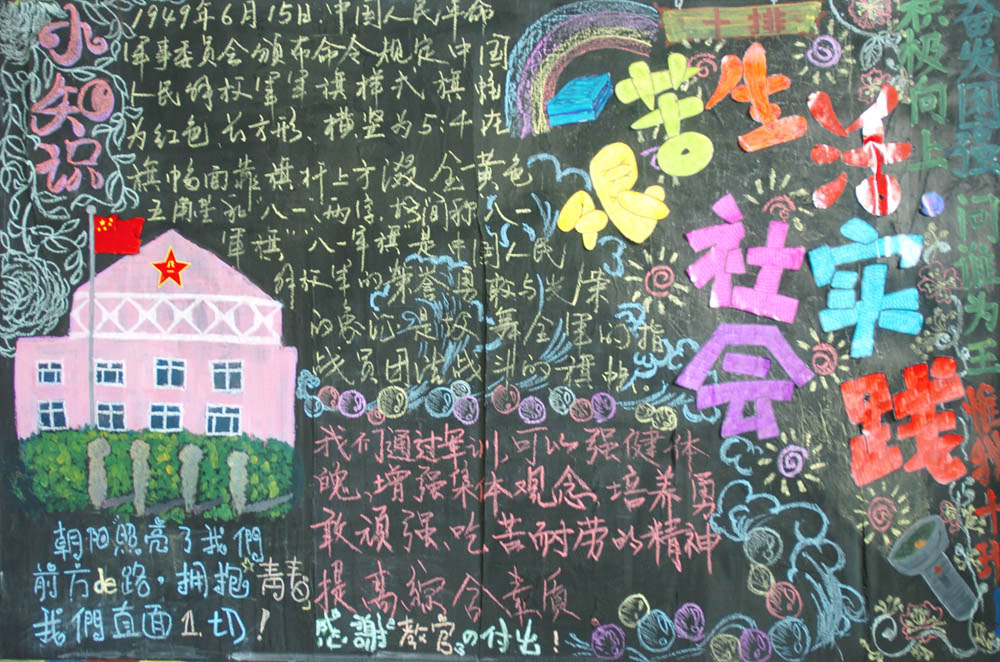 小知识
1949年6月15日，中国人民革命
军事委员会颁布命令规定中国
人民解放军军旗样式，旗幅
为红色，长方形，横竖为5:4在
旗幅面靠旗杆上方缀金黄色
五角星和“八一”两字，
军旗”，八一军旗是中国人民
解放军的荣誉勇敢与光荣
的象征是鼓舞全军的指
战员团结战斗的旗帜
十排
艰苦生活
社会实践
积极向上
奋发图强
问谁为王
唯我十排
我们通过军训，可以强健体
魄、增强集体观念、培养勇
敢顽强、吃苦而耐劳的精神
提高综合素质
感谢教官的付出！
朝阳照亮了我們
前方de路，拥抱青春
我們直面1.切！